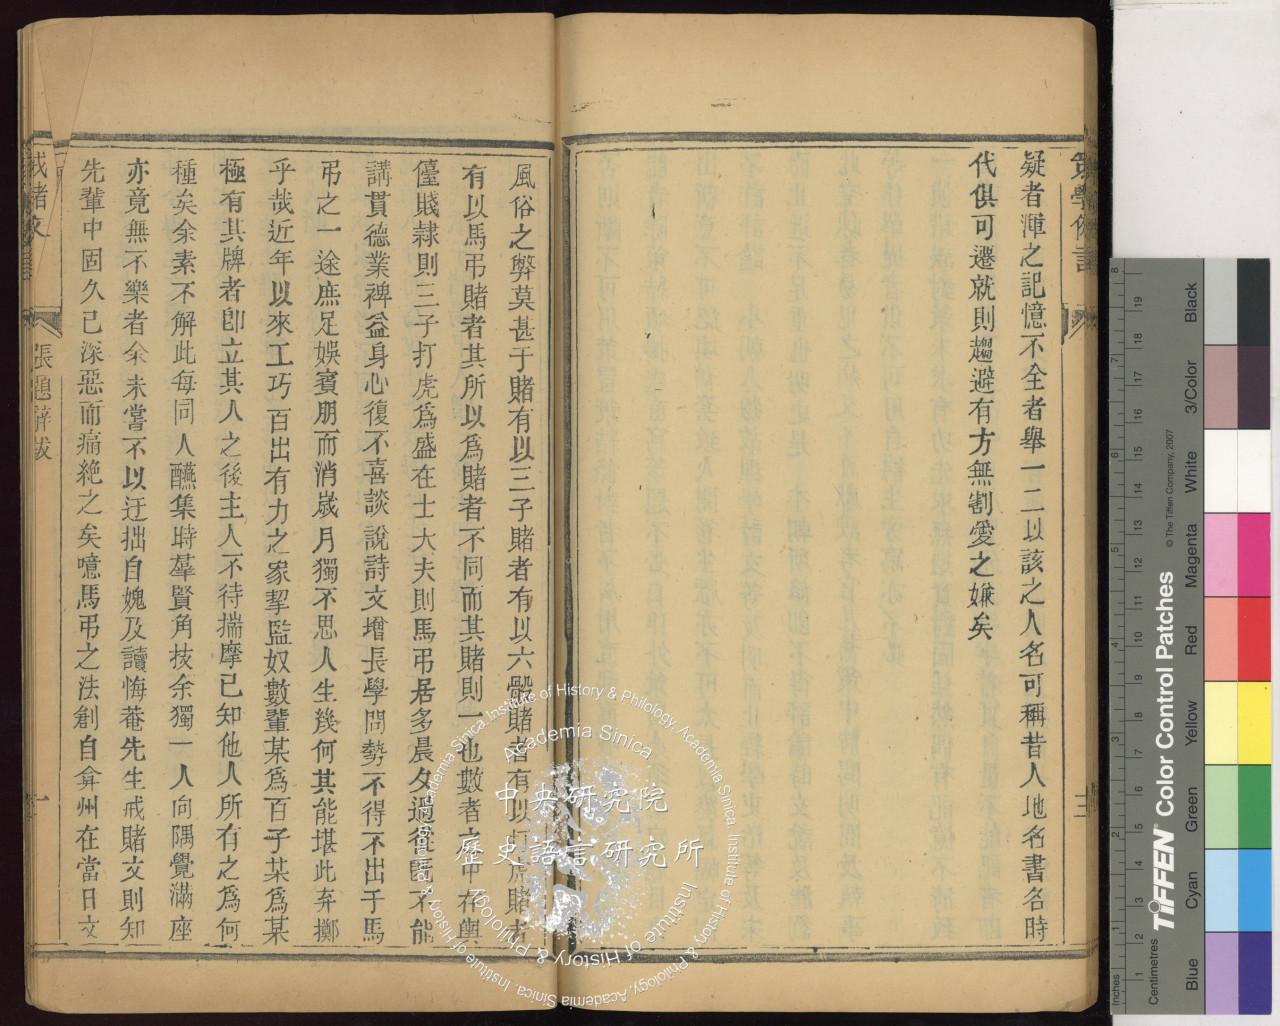 疑者渾之記憶不全者舉一二以該之人名可稱昔人地名書各時
代俱可遷就則趨避有方無割愛之嫌矣
三
風俗之弊莫甚于賭有以三子賭者有以六骰賭者有以打虎賭者
有以馬弔賭者其所以為賭者不同而其賭則一也數者之中在輿
儓賤隸則三子打虎為盛在士大夫則馬弔居多晨夕過從既不能
講貫德業裨益身心復不喜談說詩文增長學問勢不得不出于馬
弔之一途庶足娛賓朋而消歲月獨不思人生幾何其能堪此弃擲
乎哉近年以來工巧百出有力之家挈監奴數輩某為百子某為某
極有其牌者卽立其人之後主人不待揣摩已知他人所有之為何
種矣余素不解此每同人醼集時羣賢角技余獨一人向隅覺滿座
亦竟無不樂者余未嘗不以迂拙自媿及讀悔菴先生戒賭文則知
先輩中固久已深惡而痛絶之矣噫馬弔之法創自弇州在當日文
戒賭文
張題辭跋
一
中央研究院
歷史語言研究所
Academia Sinica
Institute of History & Philology, Academia Sinica
TIFFEN Color Control Patches
© The Tiffen Company, 2007
Centimetres
Inches
Blue
Cyan
Green
Yellow
Red
Magenta
White
3/Color
Black